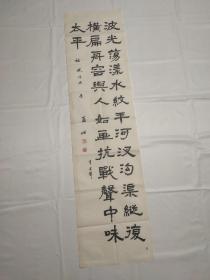 波光蕩漾水紋平河汊沟渠縱復
橫扁舟容與人如画抗戰聲中味
太平